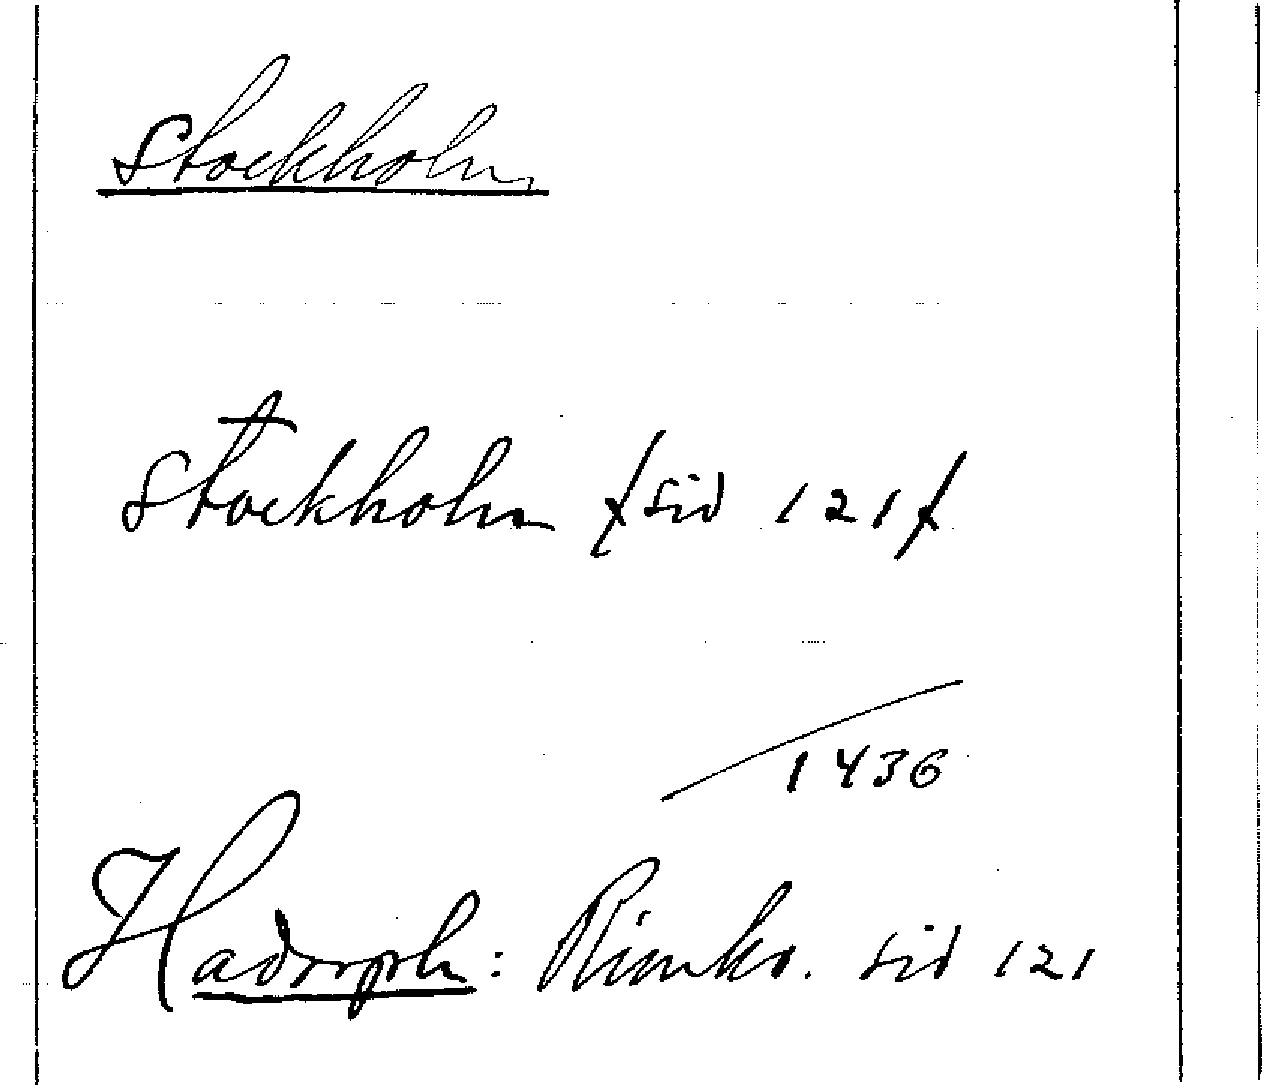 Stockholm
Stockholm /sid 121/
1436
Hadorph: Rimkr. sid 121